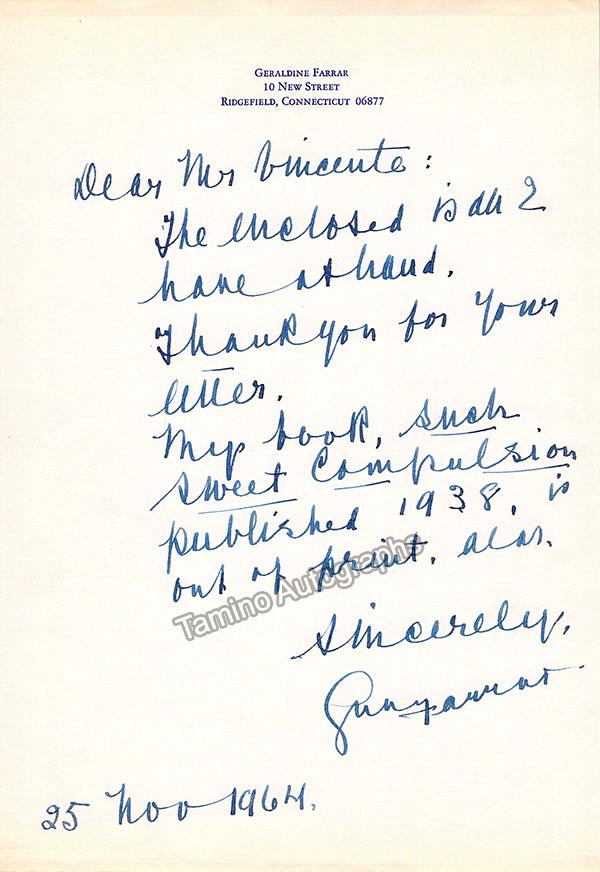 GERALDINE FARRAR
10 NEW STREET
RIDGEFIELD, CONNECTICUT 06877
Dear Mr Vincente :
The enclosed is all I
have at hand.
Thank you for your
letter.
My book, such
sweet compulsion
published 1938, is
out of print, alas.
Tamino Autographs
Sincerely,
Geraldine Farrar
25 Nov 1964.